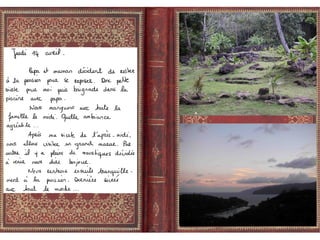 Jeudi 14 avril.
Papa et maman décident de rester
à la pension pour se reposer. Une petite
pour moi puis baignade dans la
piscine avec papa.
Nous mangeons avec toute la
famille le midi. Quelle ambiance
agréable...
Après ma sieste de l'après-midi,
nous allons visiter un grand marae. Par
contre il y a pleins de moustiques décidés
à venir nous dire bonjour.
Nous rentrons ensuite tranquille-
ment à la pension. Dernière soirée
avec tout le monde...